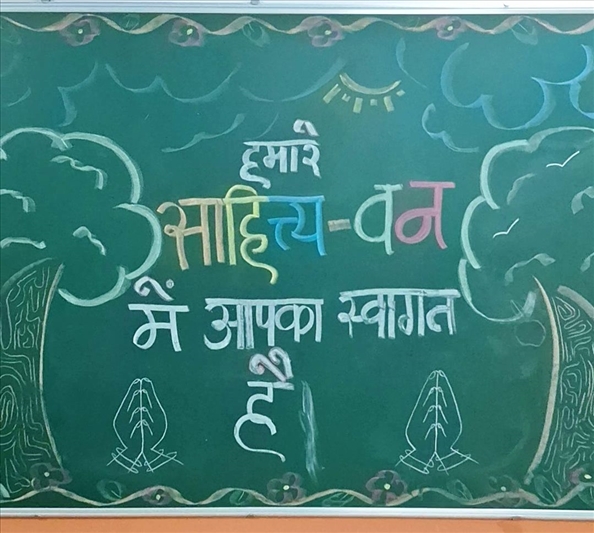 हमारे
साहित्त्य-वन
में आपका स्वागत
है।